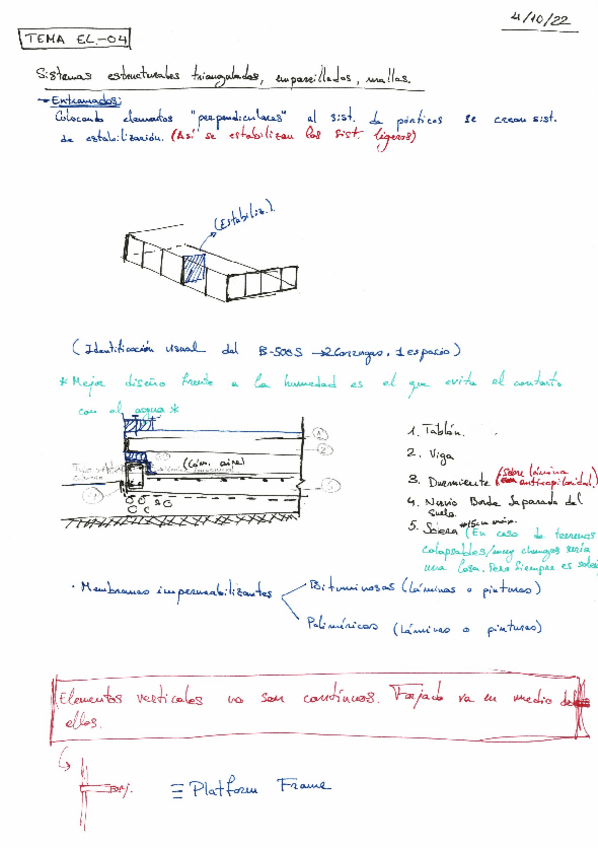 4/10/22
TEMA EL-04
Sistemas estructurales triangulados, emparrillados, mallas.
Entramados:
Colocando elementos "perpendiculares" al sist. de pórticos se crean sist.
de estabilización. (Así se estabilizan los sist. ligeros)
(Estabiliz.)
(Identificación visual del B-500S → 2 Corrugas, 1 espacio)
* Mejor diseño frente a la humedad es el que evita el contacto
con el agua *
(Cám. aire)
1. Tablón.
2. Viga
3. Durmiente (sobre lámina
anticapilaridad.)
4. Nervio Borde Separado del
Suelo
5. Solera * 15cm mín. (En caso de terrenos
colapsables/muy chungos sería
una losa. Pero siempre es solera
· Membranas impermeabilizantes
Bituminosas (láminas o pinturas)
Poliméricas (láminas o pinturas)
Elementos verticales no son contínuos. Forjado va en medio de
ellos.
Forj.
≡ Platform Frame